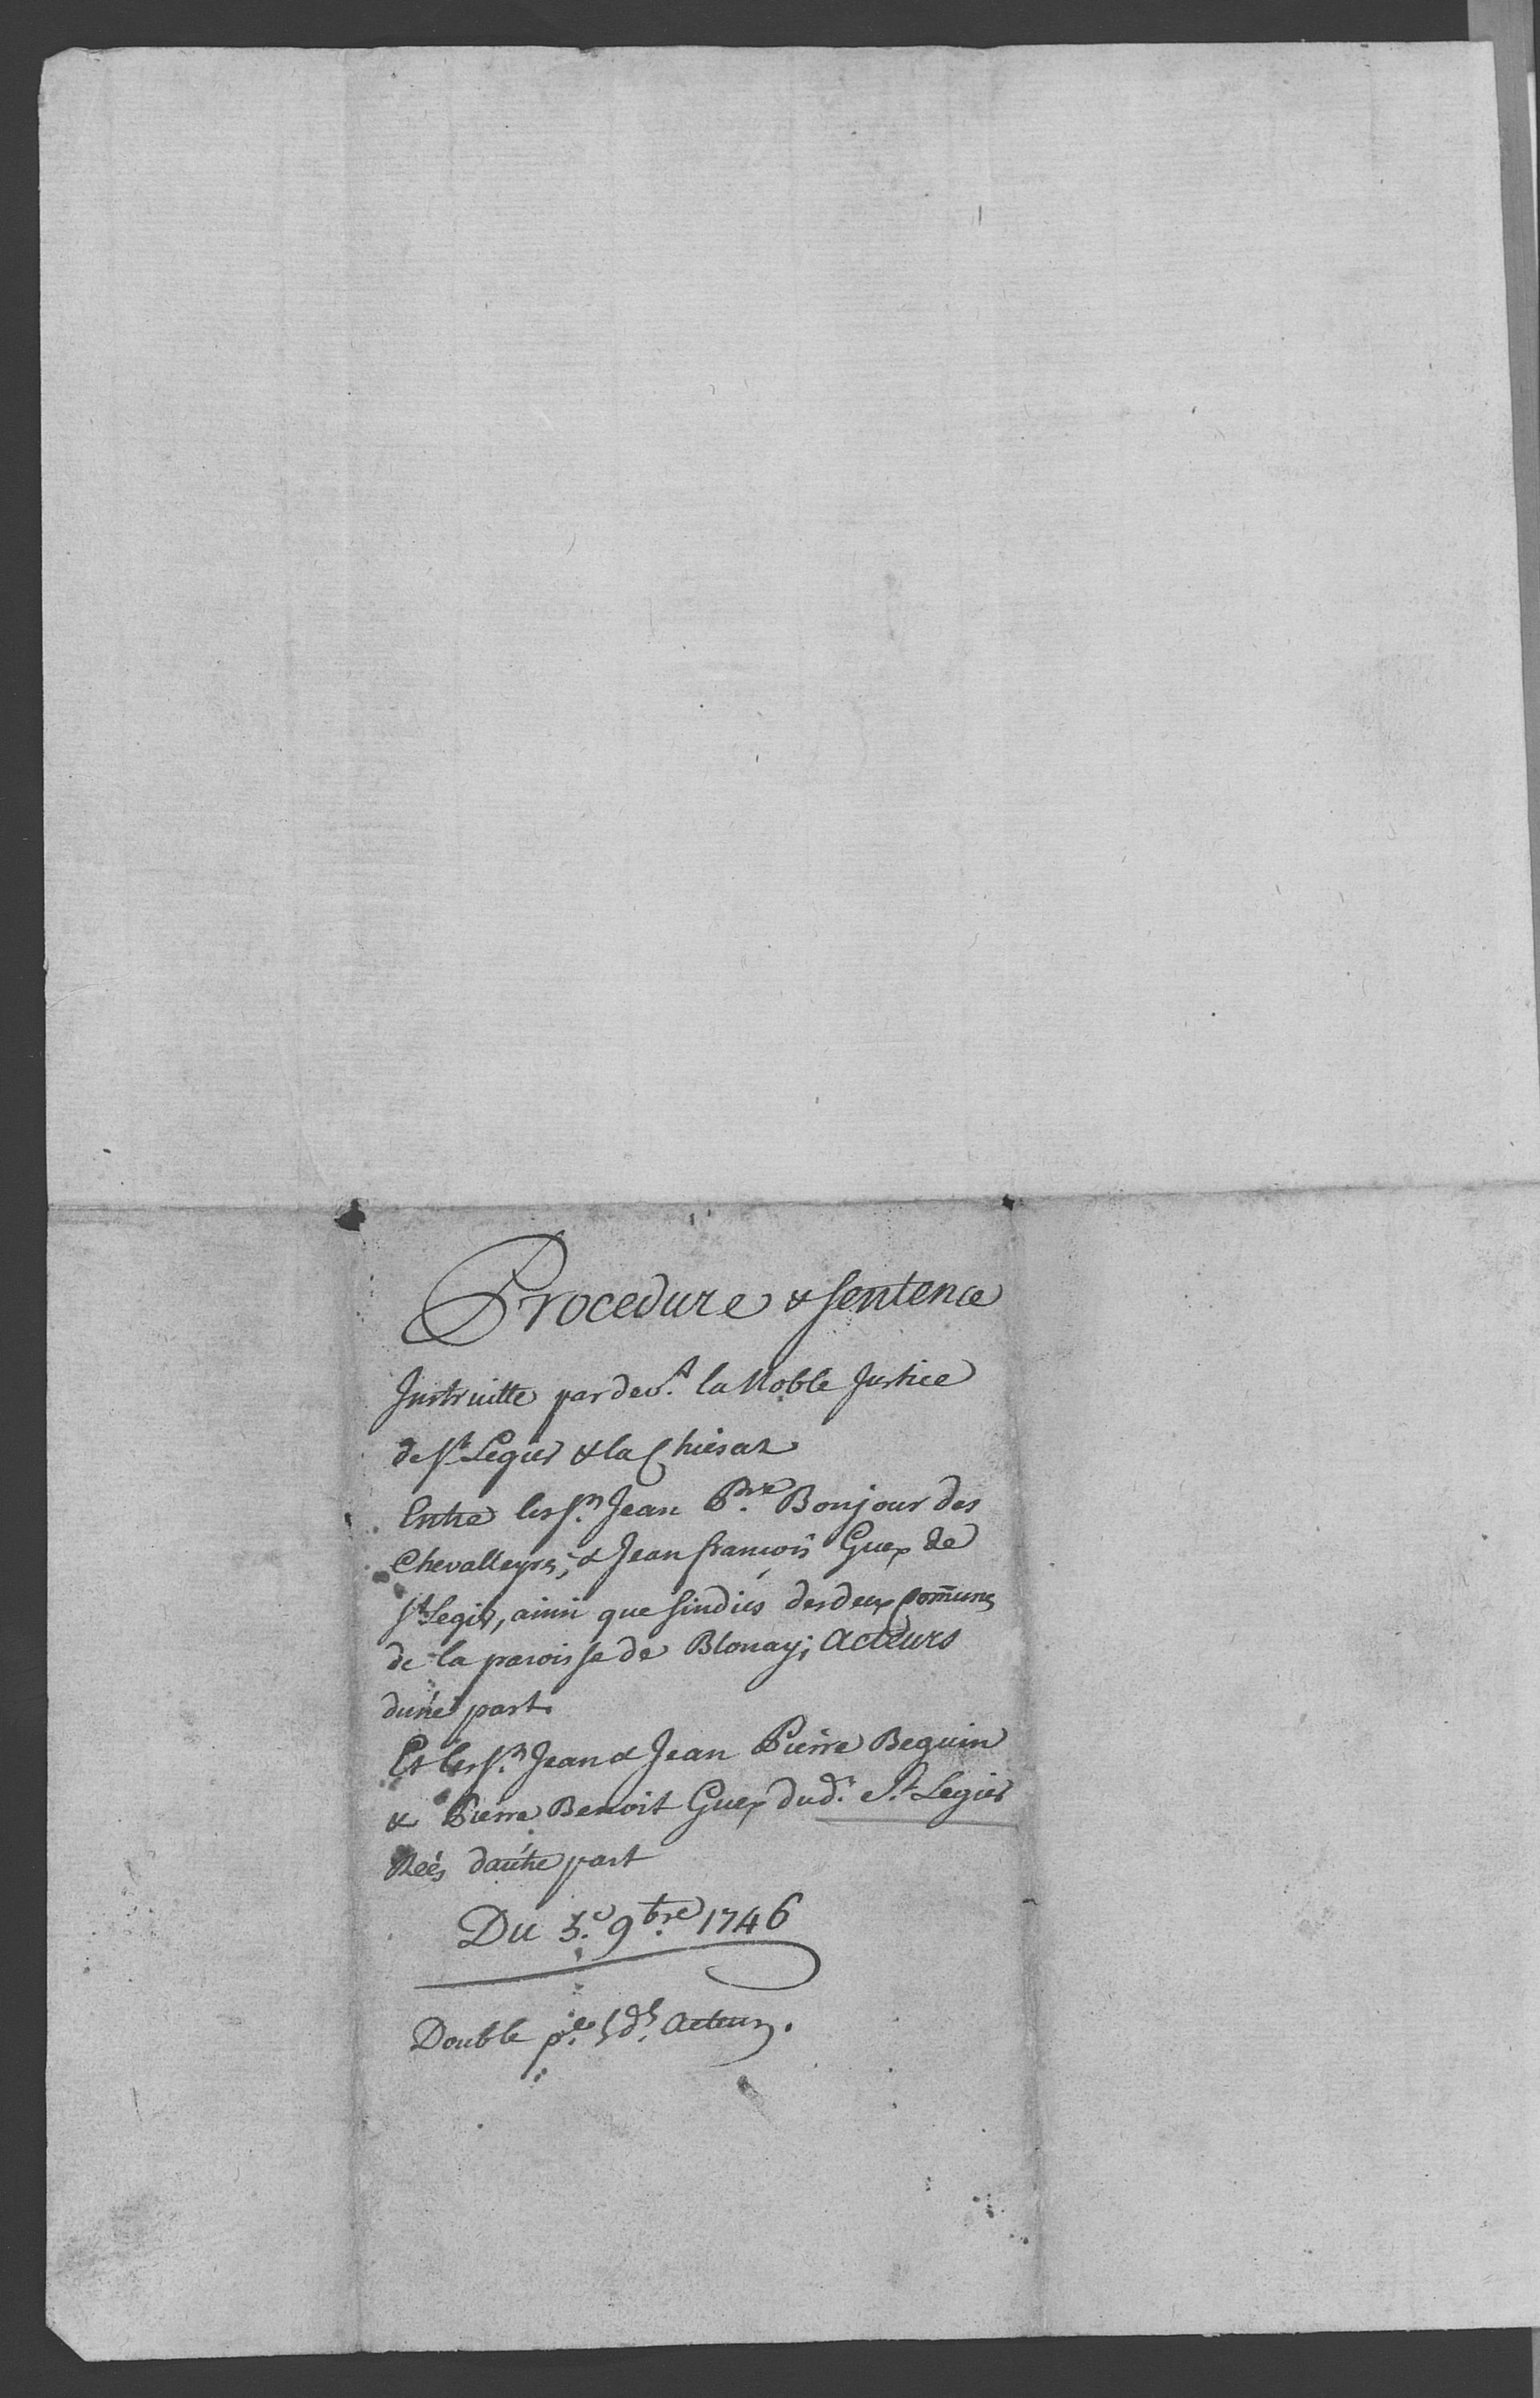 Procedure & sentence
Instruitte par dev.t la Noble Justice
de st Legier & la Chiesaz
Entre les s.rs Jean P.re Bonjour des
Chevalleyres, & Jean françois Guex de
st Legier, ainsi que sindics des deux Com̄unes
de la paroisse de Blonay; Acteurs
dune part.
Et les s.rs Jean & Jean Pierre Beguin
& Pierre Benoit Guex dud.t St Legier
Reés dautre part
Du 3.e 9bre 1746
Double p.r Acteurs.